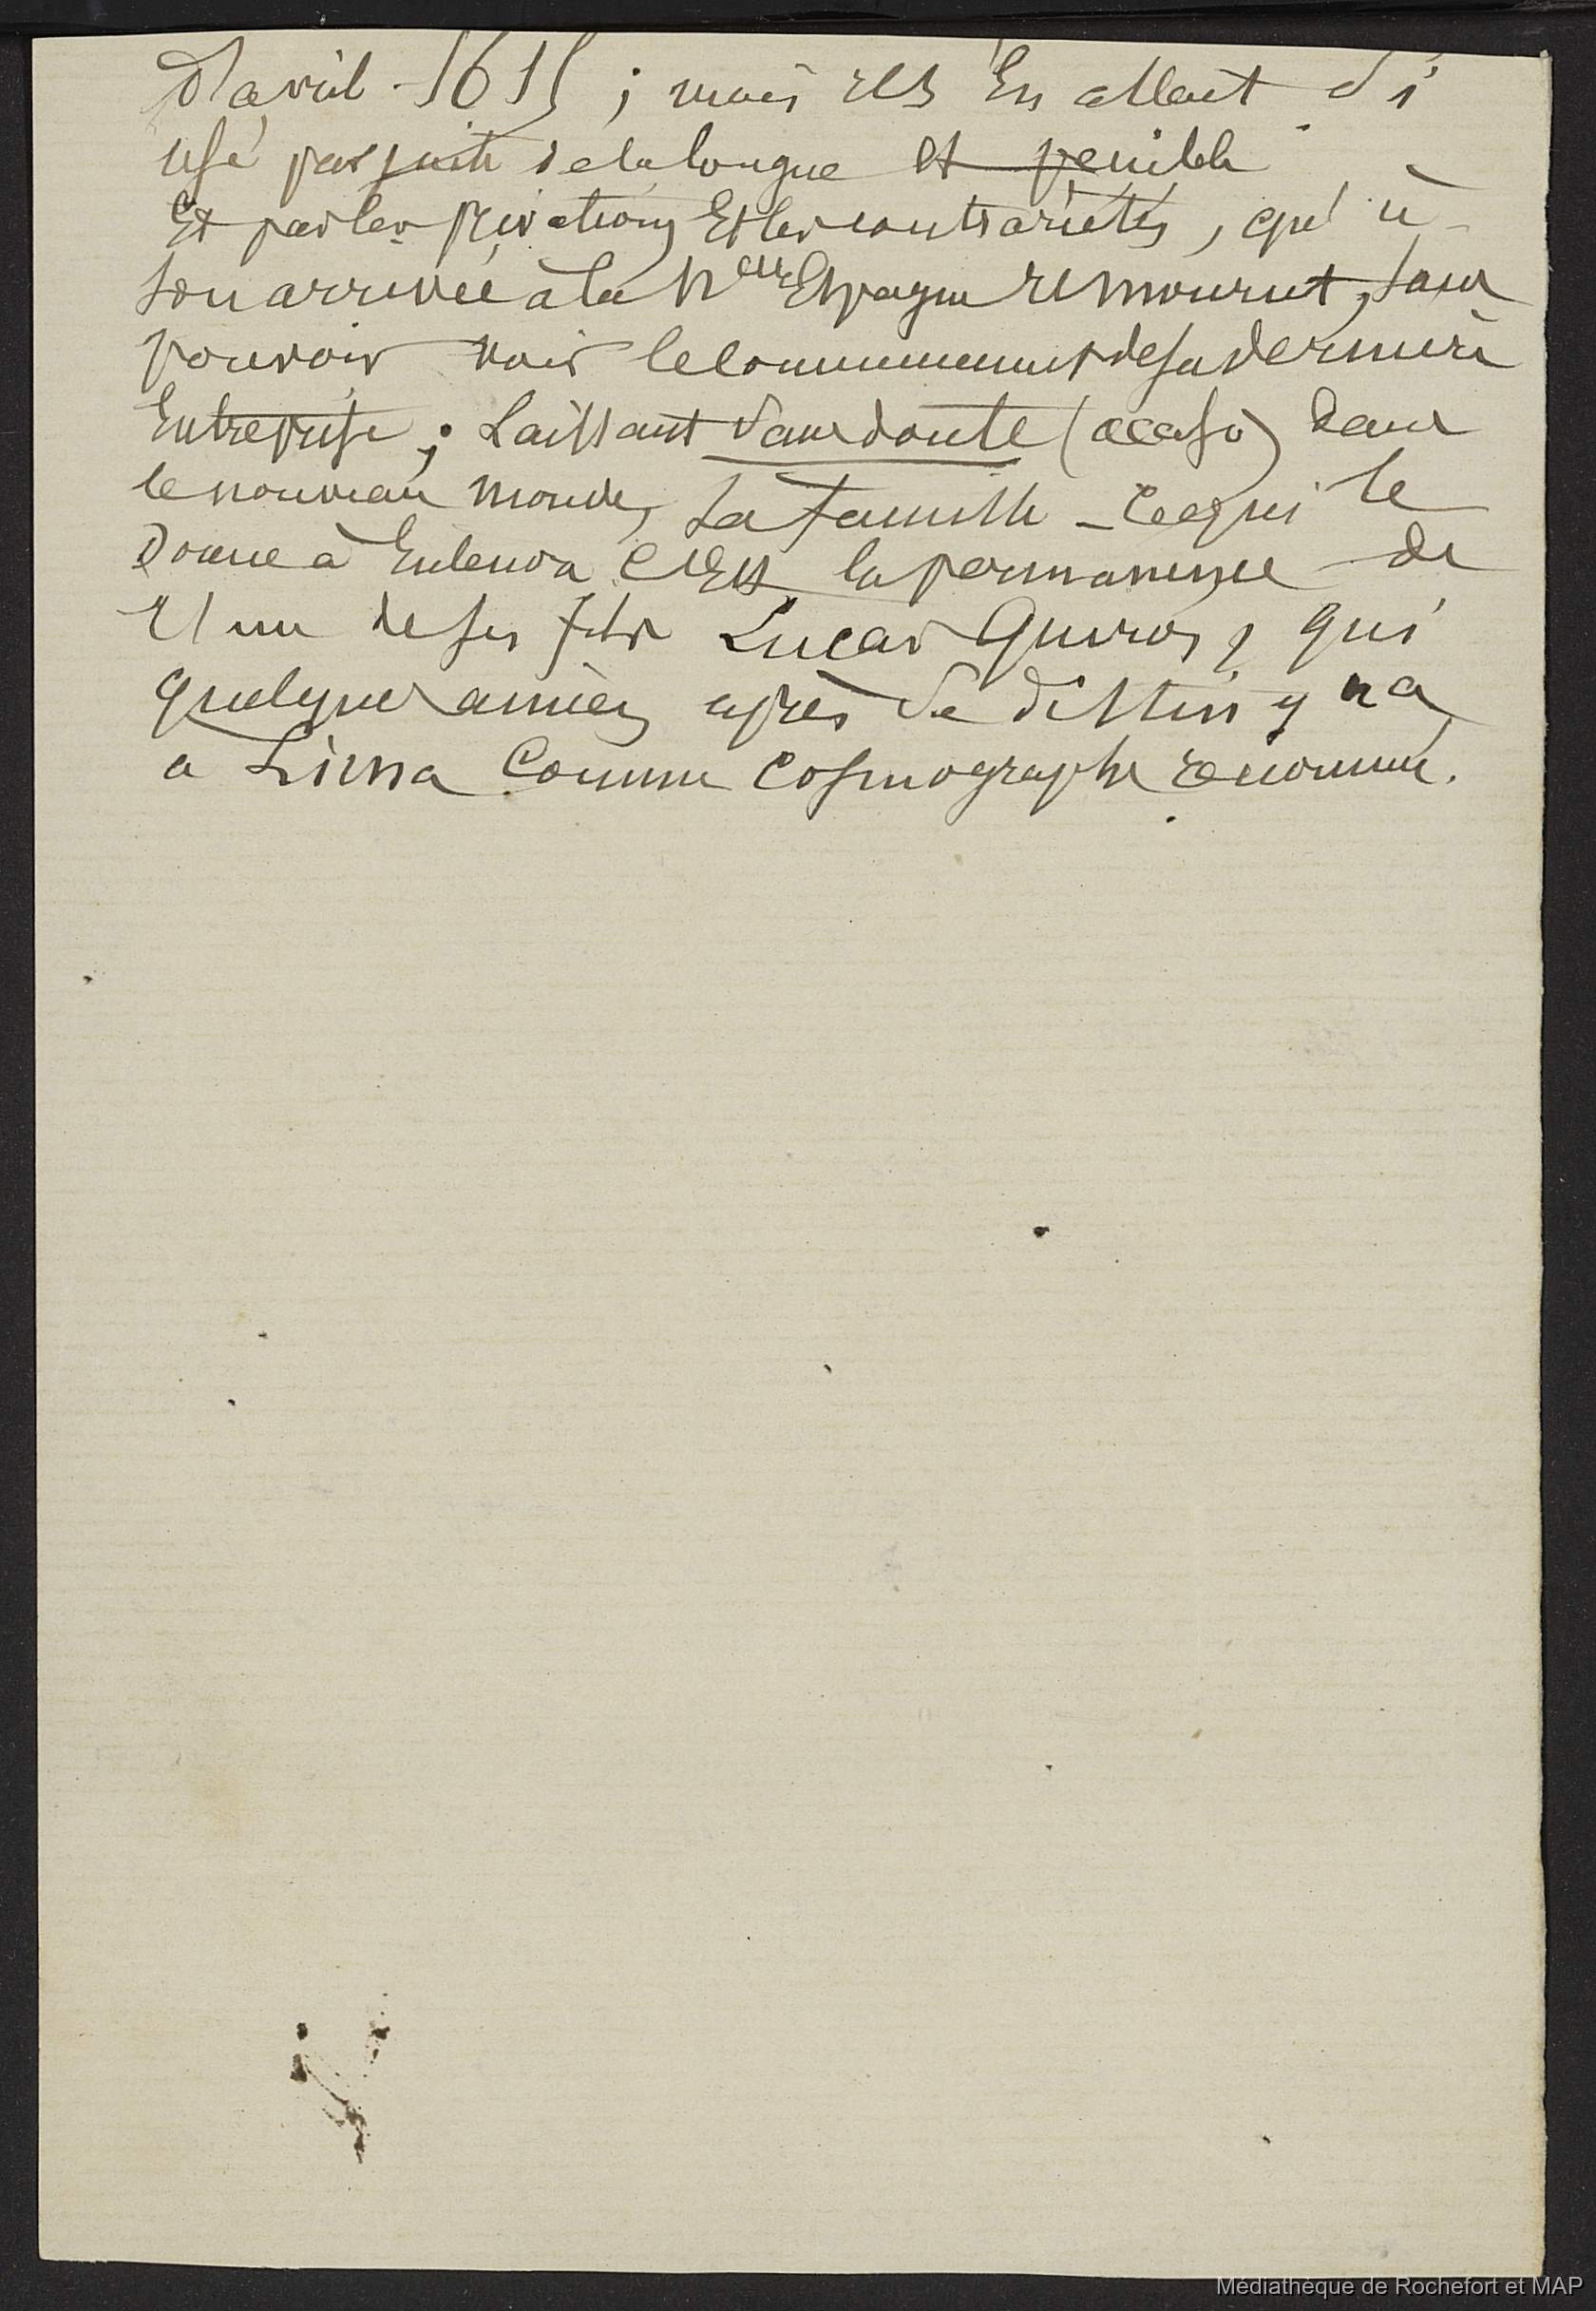 d'avril 1615 ; mais il s'en allait si
usé par suite de la longue et penible
Et par les privations Et les contrariétés, qu'à
son arrivée à la Nelle Espagne il mourut, sans
pouvoir voir le commencement de sa derniere
Entreprise ; Laissant sans doute (acaso) dans
le nouveau monde, sa famille - Ce qui le
donne à Entendre C'est la permanence de
l'un de ses fils Lucas Quiros, qui
quelques années après se distingua
a Lima Comme Cosmographe renommé.
Médiathèque de Rochefort et MAP